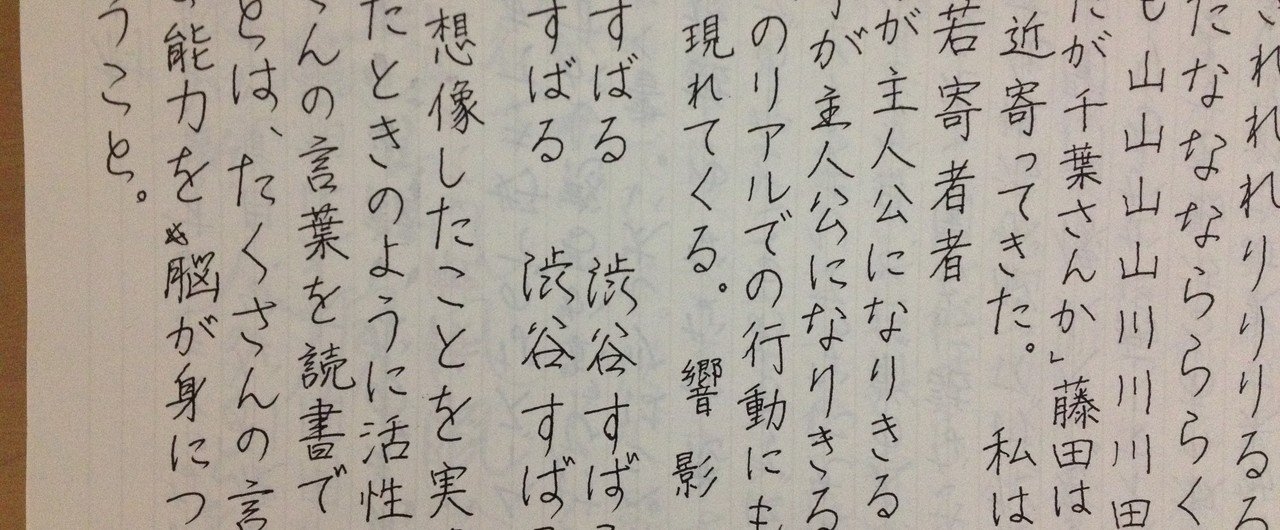 れれれりりりるる
たなななならららく
も山山山山川川川川田
だが千葉さんか」藤田は
近寄ってきた。 私は
若寄者者
が主人公になりきる
が主人公になりきる
のリアルでの行動にも
現れてくる。 響 影
すばる 渋谷すばる
すばる 渋谷すばる
想像したことを実
たときのように活性
さんの言葉を読書で
とは、たくさんの言
能力を脳が身につ
うこと。